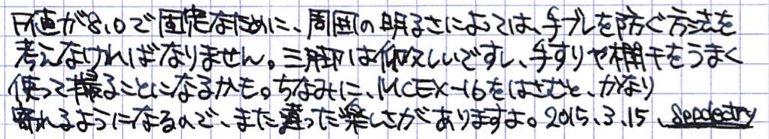 F値が8.0で固定なために、周囲の明るさによっては、手ブレを防ぐ方法を
考えなければなりません。三脚は仰々しいですし、手すりや欄干をうまく
使って撮ることになるかも。ちなみに、MCEX-16をはさむと、かなり
寄れるようになるので、また違った楽しさがありますよ。2015.3.15